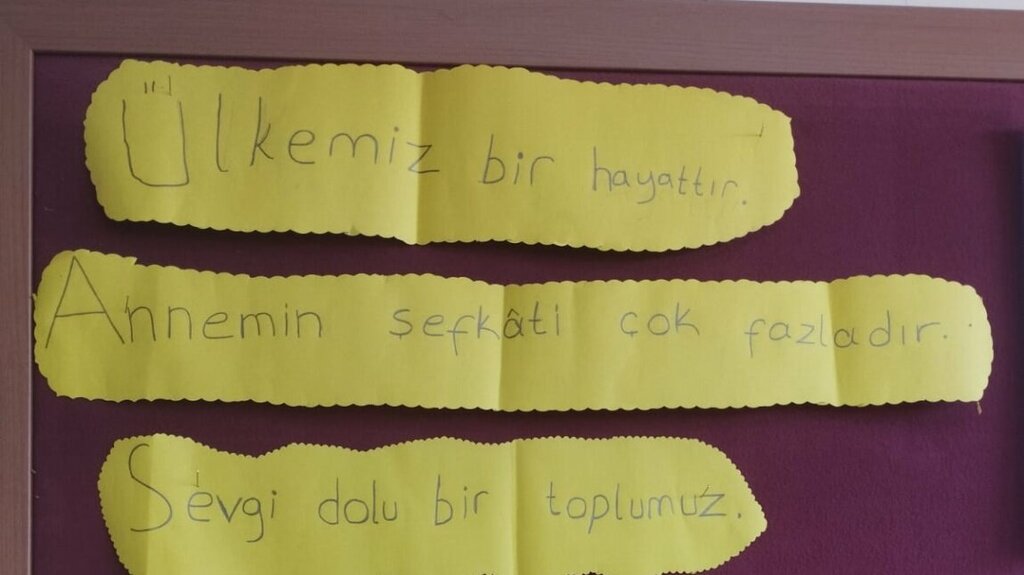 Ülkemiz bir hayattır.
Annemin şefkâti çok fazladır.
Sevgi dolu bir toplumuz.